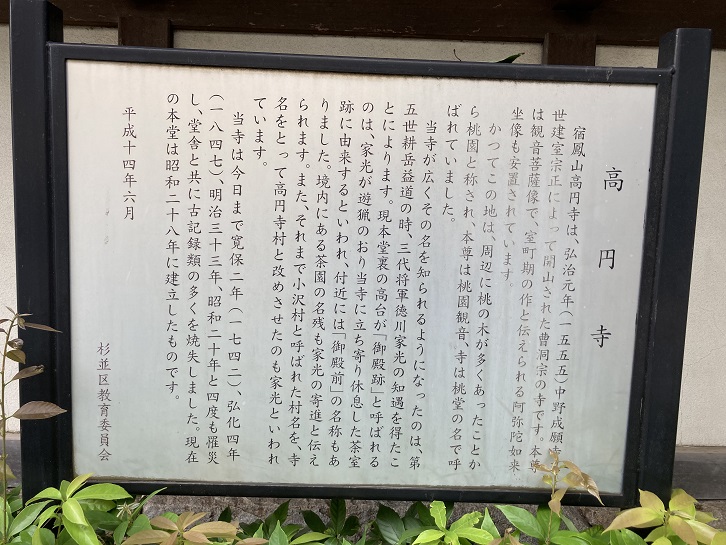 高円寺
宿鳳山高円寺は、弘治元年（一五五五）中野成願寺
世建室宗正によって開山された曹洞宗の寺です。本尊
は観音菩薩像で、室町期の作と伝えられる阿弥陀如来
坐像も安置されています。
かつてこの地は、周辺に桃の木が多くあったことか
ら桃園と称され、本尊は桃園観音、寺は桃堂の名で呼
ばれていました。
当寺が広くその名を知られるようになったのは、第
五世耕岳益道の時、三代将軍徳川家光の知遇を得たこ
とによります。現本堂裏の高台が「御殿跡」と呼ばれる
のは、家光が遊猟のおり当寺に立ち寄り休息した茶室
跡に由来するといわれ、付近には「御殿前」の名称もあ
りました。境内にある茶園の名残も家光の寄進と伝え
られます。また、それまで小沢村と呼ばれた村名を、寺
名をとって高円寺村と改めさせたのも家光といわれ
ています。
当寺は今日まで寛保二年（一七四二）、弘化四年
（一八四七）、明治三十三年、昭和二十年と四度も罹災
し、堂舎と共に古記録類の多くを焼失しました。現在
の本堂は昭和二十八年に建立したものです。
平成十四年六月
杉並区教育委員会